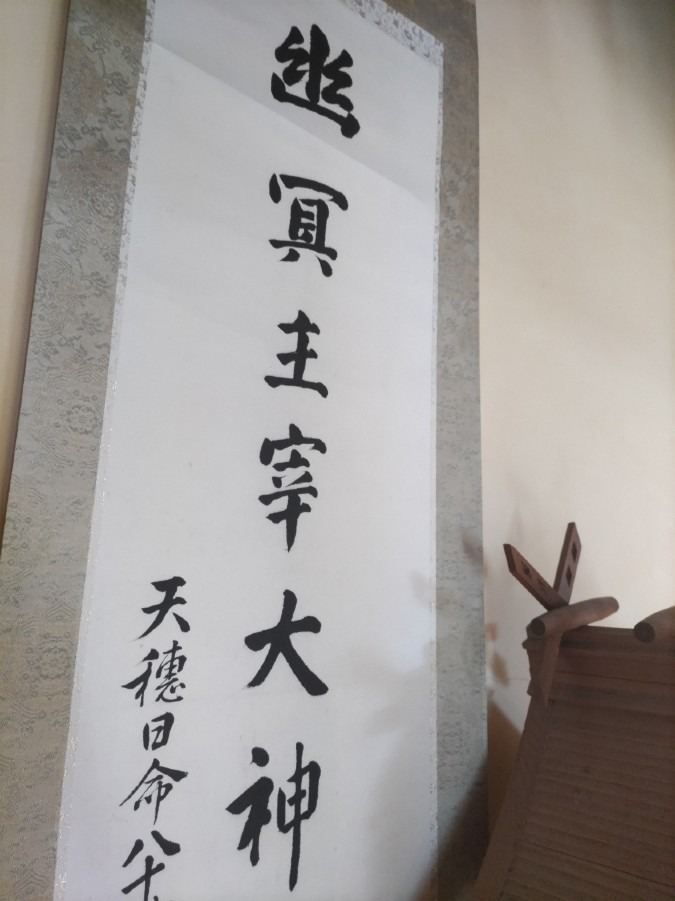 幽冥主宰大神
天穗日命八十